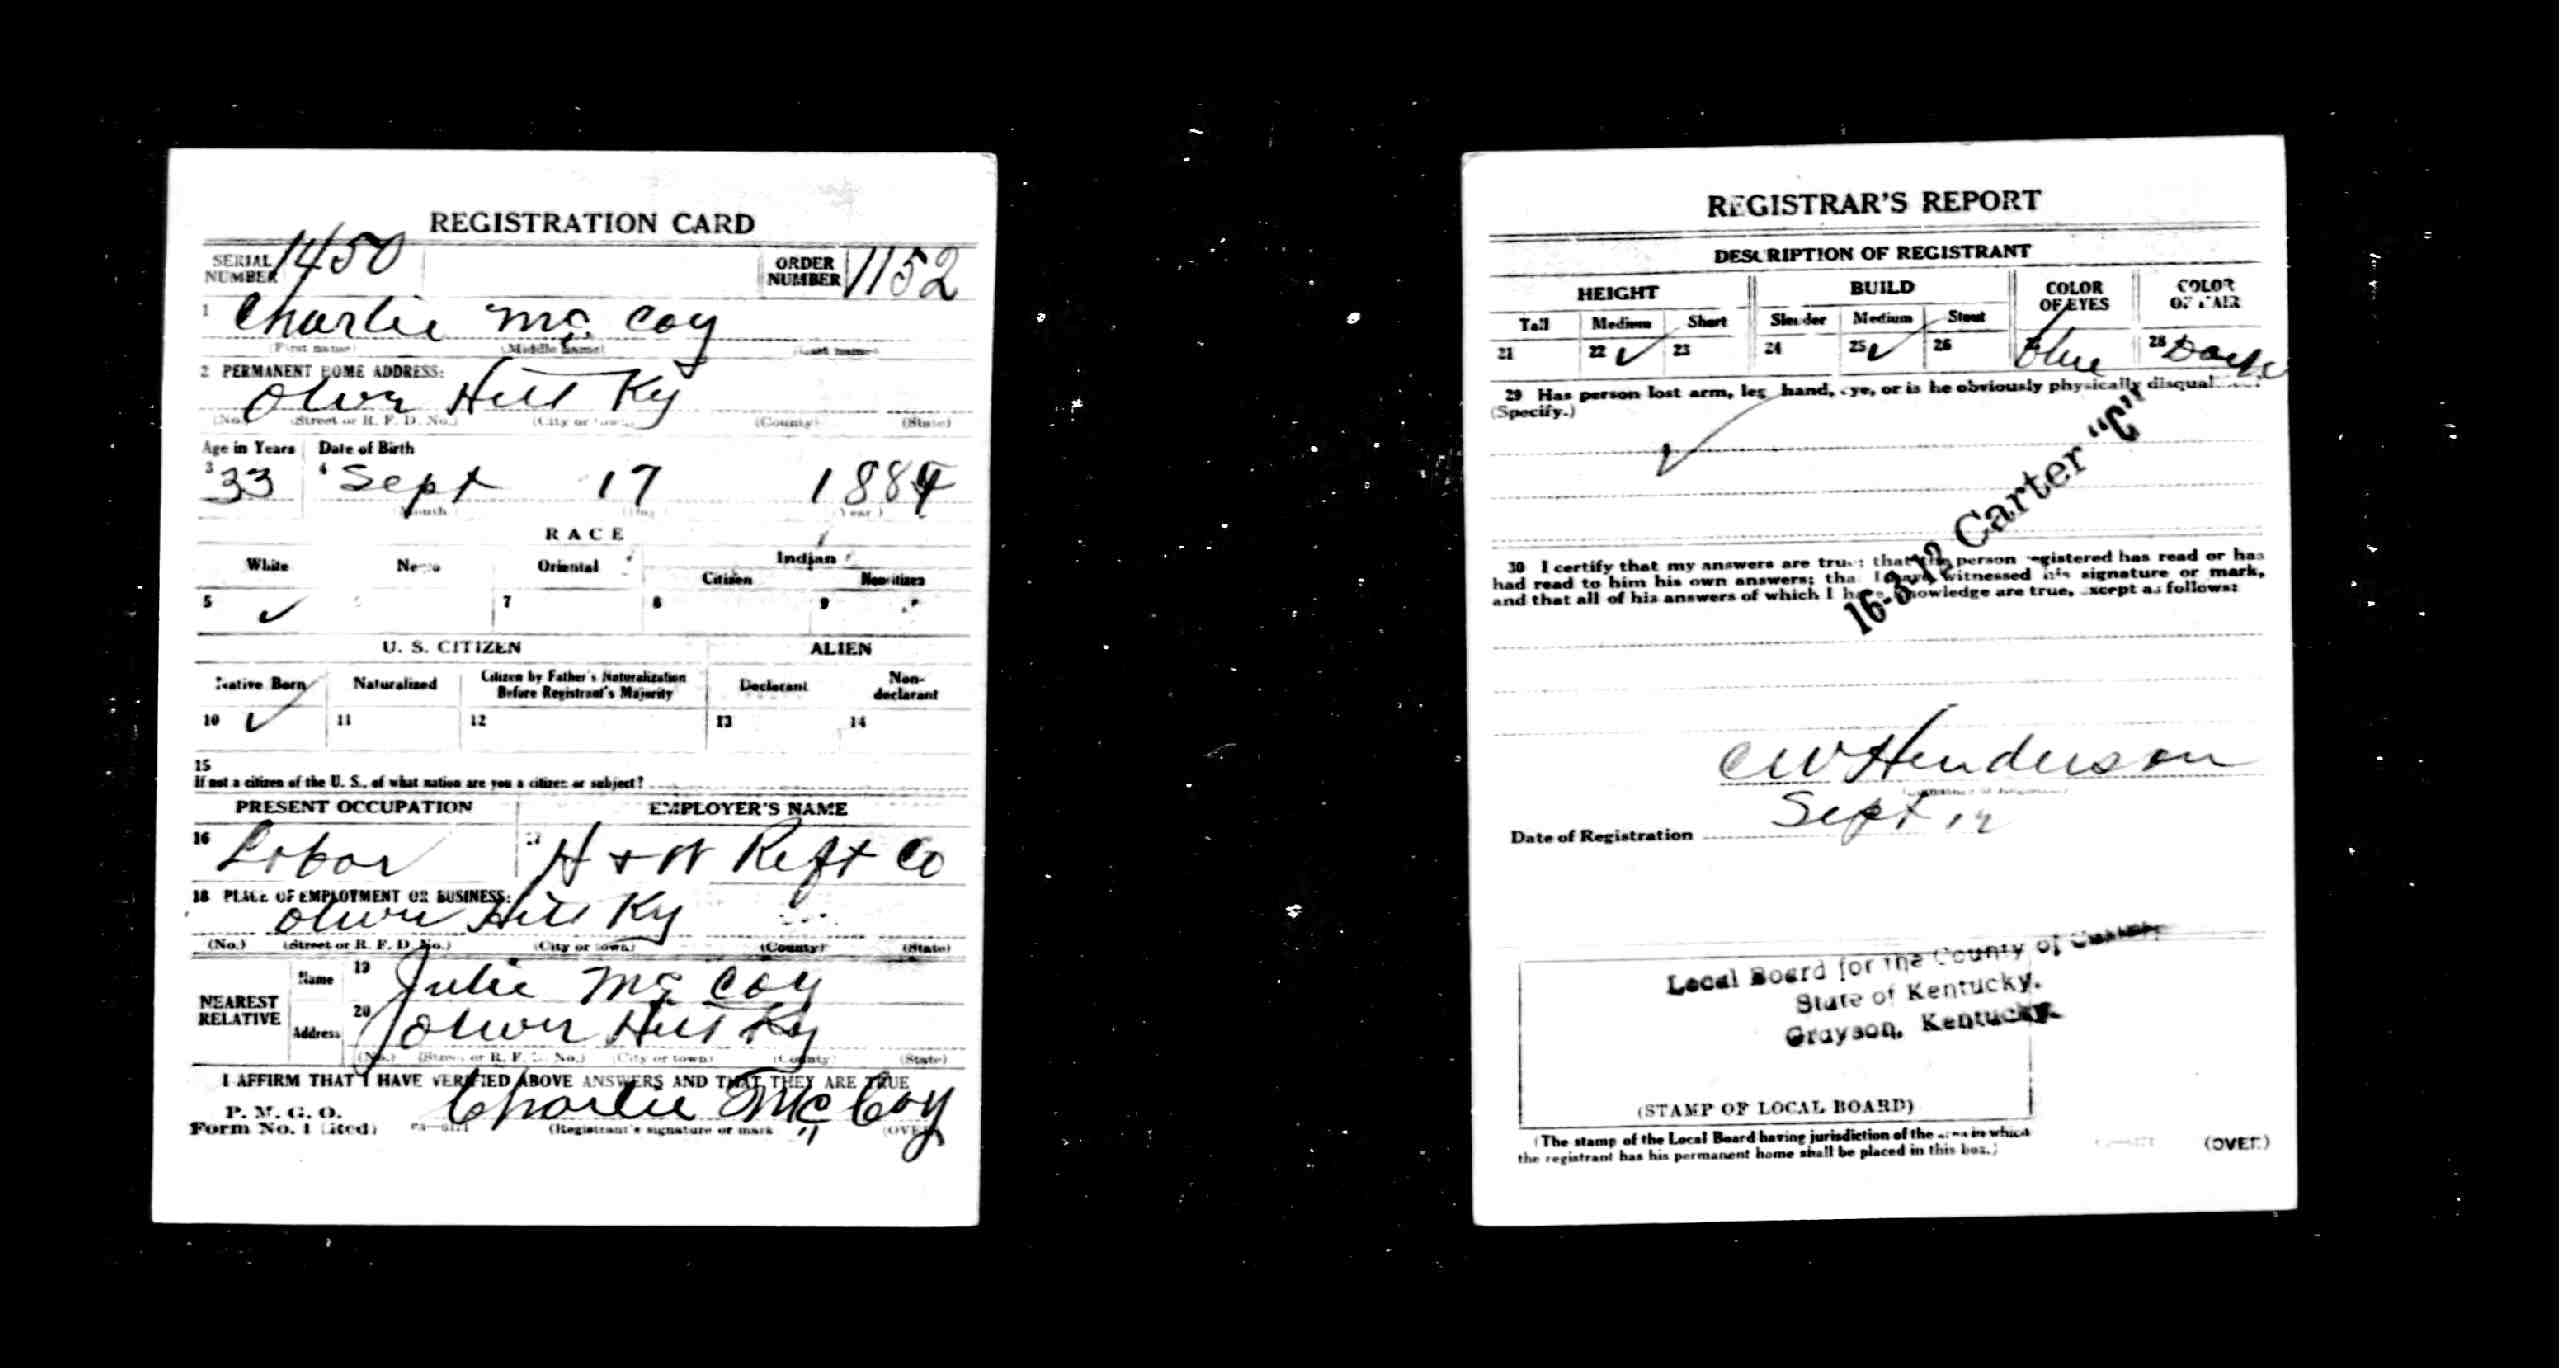 REGISTRATION CARD
SERIAL NUMBER 1450 ORDER NUMBER 1152
1 Charlie Mc Coy
(First name) (Middle name) (Last name)
2 PERMANENT HOME ADDRESS:
Olive Hill Ky
(No.) (Street or R. F. D. No.) (City or town) (County) (State)
Age in Years Date of Birth
3 33 4 Sept 17 1884
(Month) (Day) (Year)
RACE
White Negro Oriental Indian
Citizen Noncitizen
5 ✓ 7 8 9
U. S. CITIZEN ALIEN
Native Born Naturalized Citizen by Father's Naturalization Before Registrant's Majority Declarant Non-declarant
10 ✓ 11 12 13 14
15
If not a citizen of the U. S., of what nation are you a citizen or subject?
PRESENT OCCUPATION EMPLOYER'S NAME
16 Labor 17 H + W Reft Co
18 PLACE OF EMPLOYMENT OR BUSINESS:
Olive Hill Ky
(No.) (Street or R. F. D. No.) (City or town) (County) (State)
NEAREST RELATIVE
Name 19 Julie Mc Coy
Address 20 Olive Hill Ky
(No.) (Street or R. F. D. No.) (City or town) (County) (State)
I AFFIRM THAT I HAVE VERIFIED ABOVE ANSWERS AND THAT THEY ARE TRUE
P. M. G. O.
Form No. 1 Charlie Mc Coy
(Registrant's signature or mark) (OVER)
REGISTRAR'S REPORT
DESCRIPTION OF REGISTRANT
HEIGHT BUILD COLOR OF EYES COLOR OF HAIR
Tall Medium Short Slender Medium Stout
21 22 ✓ 23 24 25 ✓ 26 Blue 28 Dark
29 Has person lost arm, leg, hand, eye, or is he obviously physically
(Specify.)
✓
16-3-12 Carter "C"
30 I certify that my answers are true; that the person registered has read or has
had read to him his own answers; that I have witnessed his signature or mark,
and that all of his answers of which I have knowledge are true, except as follows:
C W Henderson
(Signature of Registrar)
Date of Registration Sept 12
Local Board for the County of Carter,
State of Kentucky.
Grayson, Kentucky.
(STAMP OF LOCAL BOARD)
(The stamp of the Local Board having jurisdiction of the area in which
the registrant has his permanent home shall be placed in this box.)
(OVER)